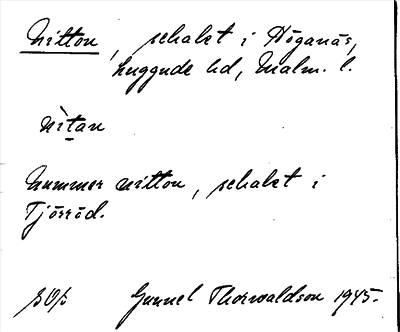 Nitton, schakt i Höganäs,
Luggude hd, Malm. l.
nìtan
Nummer nitton, schakt i
Tjörröd.
Gunnel Thorwaldson 1945.